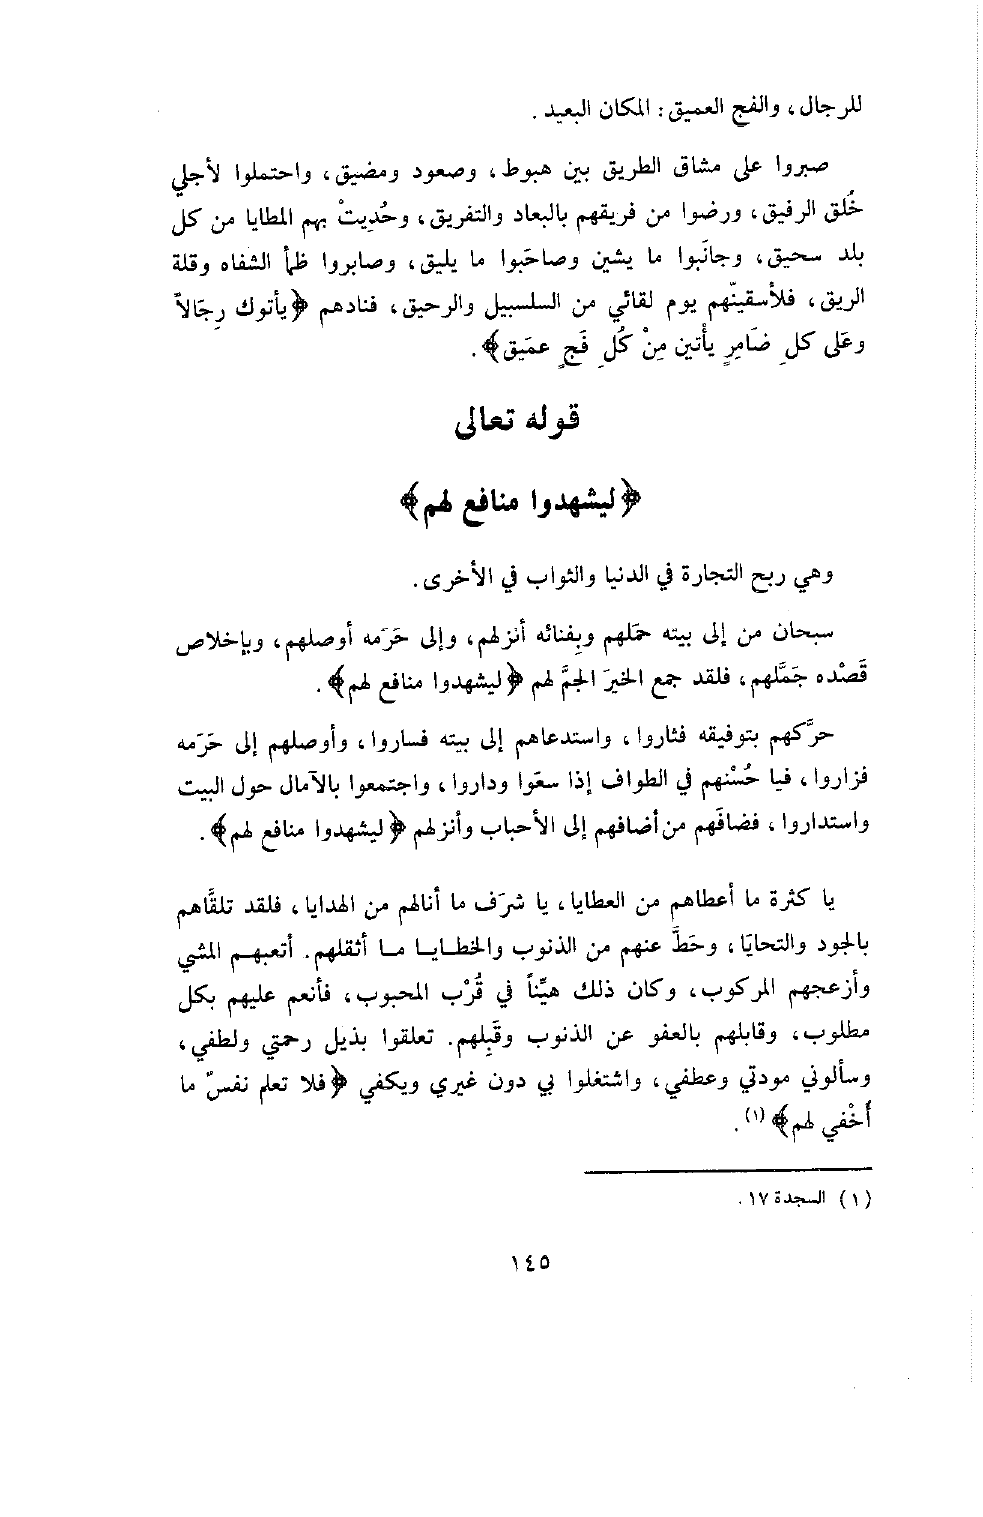 للرجال، والفج العميق: المكان البعيد.
صبروا على مشاق الطريق بين هبوط، وصعود ومضيق، واحتملوا لأجلي
خُلق الرفيق، ورضوا من فريقهم بالبعاد والتفريق، وحُدِيتْ بهم المطايا من كل
بلد سحيق، وجانَبوا ما يشين وصاحَبوا ما يليق، وصابروا ظمأ الشفاه وقلة
الريق، فلأسقينّهم يوم لقائي من السلسبيل والرحيق، فنادهم ﴿يأتوك رِجَالاً
وعَلى كلِ ضَامِرٍ يأْتين مِنْ كُلِ فَجٍ عمَيق﴾.
قوله تعالى
﴿ليشهدوا منافع لهم﴾
وهي ربح التجارة في الدنيا والثواب في الأخرى.
سبحان من إلى بيته حمَلهم وبِفنائه أنزلهم، وإلى حَرَمه أوصلهم، وبإخلاص
قَصْده جَمَّلهم، فلقد جمع الخيرَ الجمَّ لهم ﴿ليشهدوا منافع لهم﴾.
حرَّكهم بتوفيقه فثاروا، واستدعاهم إلى بيته فساروا، وأوصلهم إلى حَرَمه
فزاروا، فيا حُسْنهم في الطواف إذا سعَوا وداروا، واجتمعوا بالآمال حول البيت
واستداروا، فضافَهم من أضافهم إلى الأحباب وأنزلهم ﴿ليشهدوا منافع لهم﴾.
يا كثرة ما أعطاهم من العطايا، يا شرَف ما أنالهم من الهدايا، فلقد تلقَّاهم
بالجود والتحايَا، وحَطَّ عنهم من الذنوب والخطايا ما أثقلهم. أتعبهم المشي
وأزعجهم المركوب، وكان ذلك هيِّناً في قُرْب المحبوب، فأنعم عليهم بكل
مطلوب، وقابلهم بالعفو عن الذنوب وقَبِلهم. تعلقوا بذيل رحمتي ولطفي،
وسألوني مودتي وعطفي، واشتغلوا بي دون غيري ويكفي ﴿فلا تعلم نفسٌ ما
أُخْفي لهم﴾(١).
(١) السجدة ١٧.
١٤٥